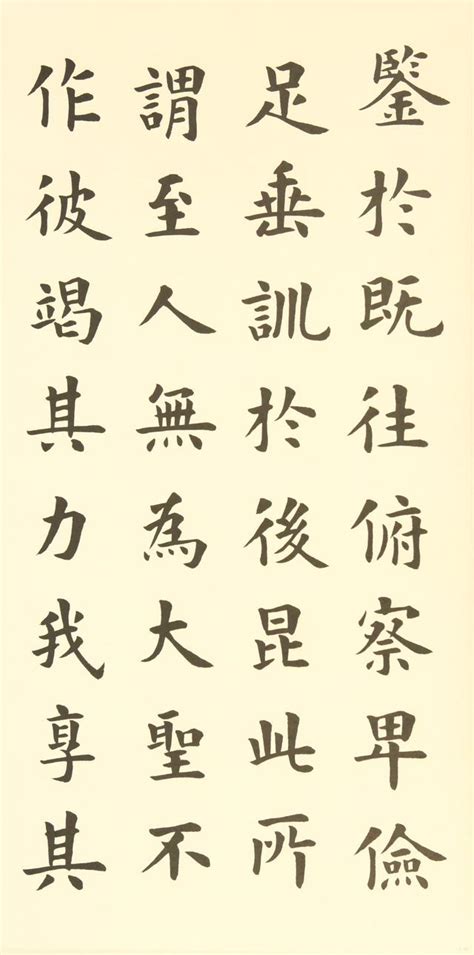 鑒於既往俯察卑儉
足垂訓於後昆此所
謂至人無為大聖不
作彼竭其力我享其